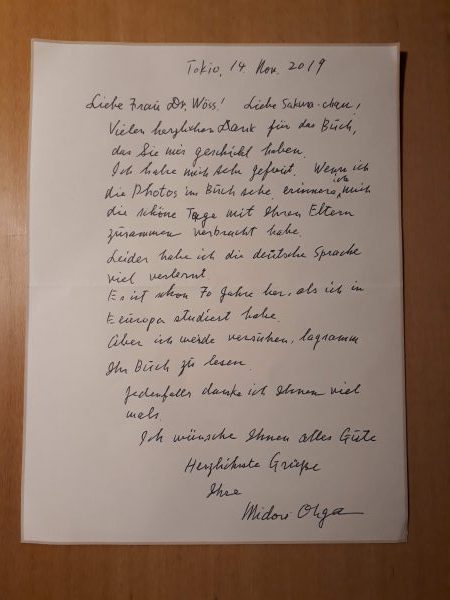 Tokio, 14. Nov. 2019
Liebe Frau Dr. Wöss! Liebe Sakura-chan!
Vielen herzlichen Dank für das Buch,
das Sie mir geschickt haben.
Ich habe mich sehr gefreut. Wenn ich
die Photos im Buch sehe, erinnere ich mich
die schöne Tage mit Ihren Eltern
zusammen verbracht habe.
Leider habe ich die deutsche Sprache
viel verlernt.
Es ist schon 70 Jahre her, als ich in
Eeuropa studiert habe.
Aber ich werde versuchen, lagsamm
Ihr Buch zu lesen.
Jedenfalls danke ich Ihnen viel
mals.
Ich wünsche Ihnen alles Gute
Herzlichste Grüße
Ihre
Midori Ohga